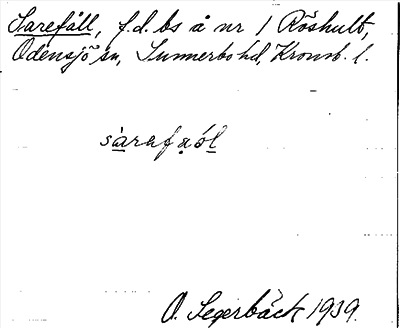 Sarefåll, f.d. bs å nr 1 Röshult,
Odensjö sn, Sunnerbo hd, Kronob. l.
sàrafaól
O. Segerbäck 1939.